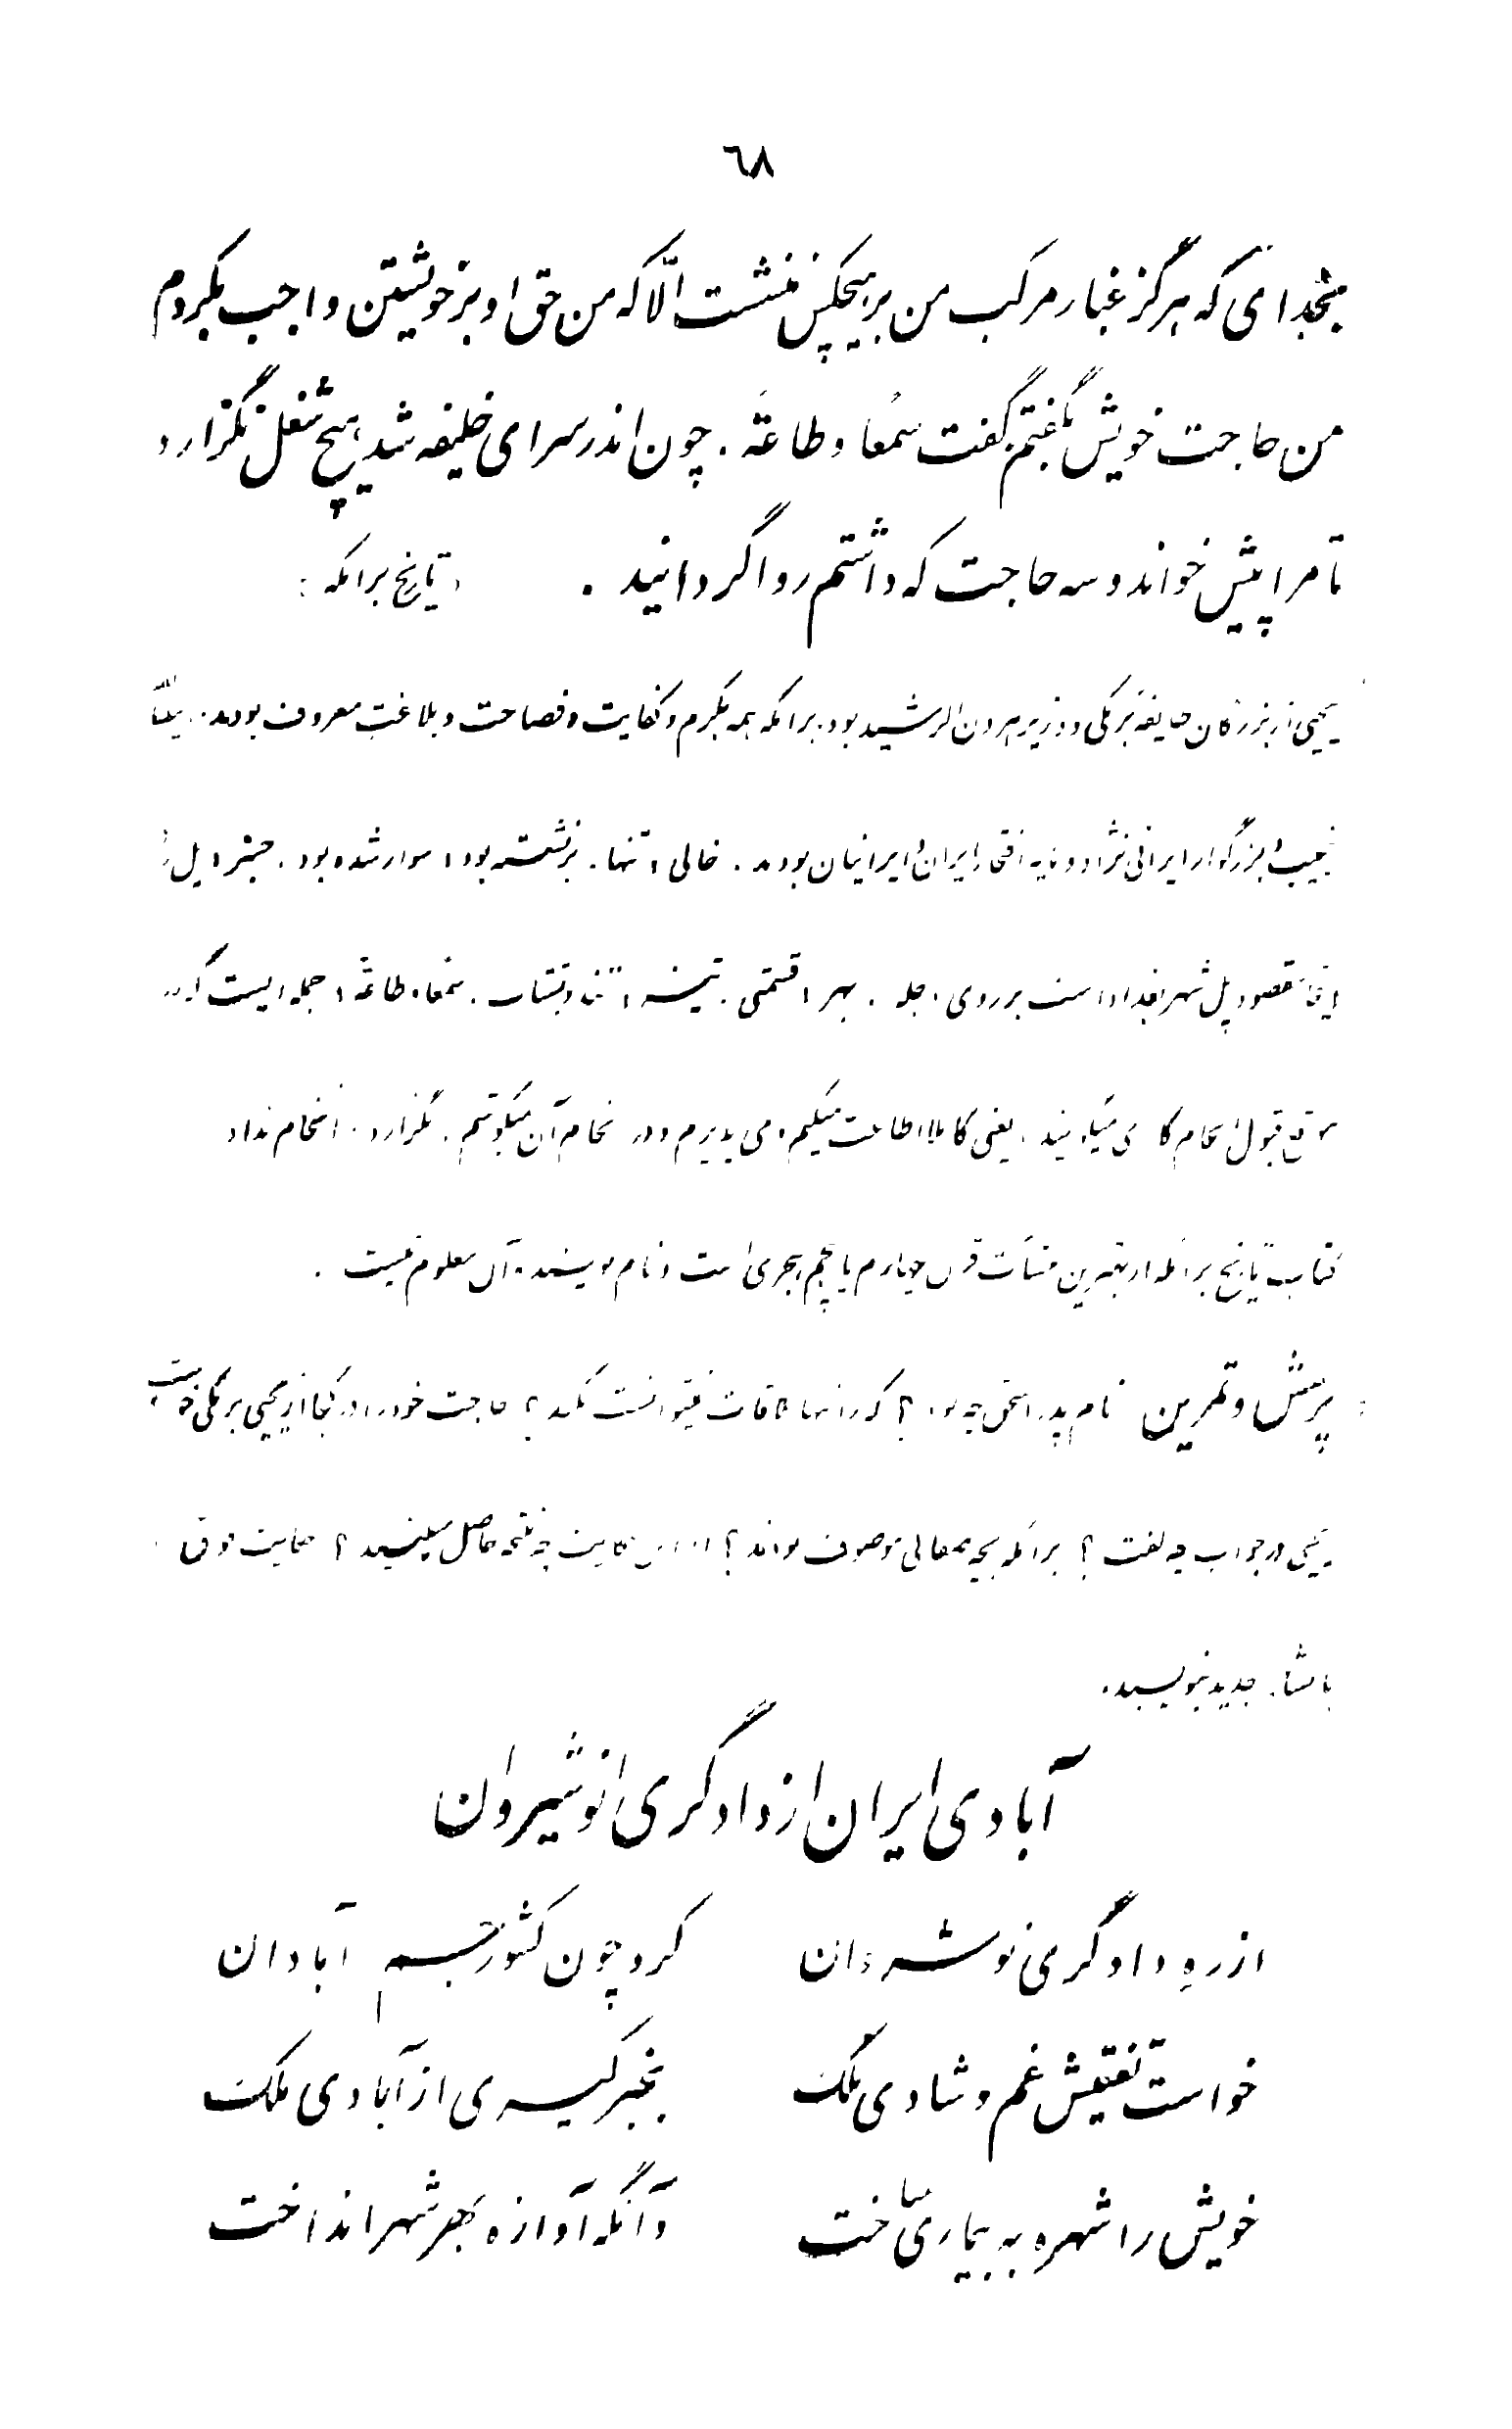 ٦٨
بخدای که هرگز غبار مرکب من بر هیچکس ننشست الّا که من حق او بر خویشتن واجب بکردم
من حاجت خویش بگفتم گفت سَمعاً و طاعَةً . چون اندر سرای خلیفه شد هیچ شغل نگزارد
تا مرا پیش خواند و سه حاجت که داشتم روا گردانید . تاریخ برامکه
یحیی از بزرگان طایفه برمکی و وزیر هرون الرشید بود. برامکه همه بکرم و کفایت و فصاحت و بلاغت معروف بودند.
نجیب و بزرگوار ایرانی نژاد و مایه افتخار ایران و ایرانیان بودند . خالی ، تنها . برنشسته بود ، سوار شده بود . جسر ، پل :
اینجا مقصود پل شهر بغداد است بر روی دجله . بهر ، قسمتی . تیز ، تند و بشتاب . سمعاً و طاعةً ، جمله ایست که در
موقع قبول انجام کاری میگویند ، یعنی کاملا اطاعت میکنم و می پذیرم و در انجام آن میکوشم . نگزارد ، انجام نداد
کتاب تاریخ برامکه از بهترین منشآت قرن چهارم یا پنجم هجری است و نام نویسنده آن معلوم نیست .
پرسش و تمرین نام پدر اسحق چه بود ؟ که را تنها ملاقات نمیتوانست بکند ؟ حاجت خود را در کجا از یحیی برمکی خواست
یحیی در جواب چه گفت ؟ برامکه بچه خصالی موصوف بودند ؟ از این حکایت چه نتیجه حاصل میکنید ؟ حکایت فوق
با انشاء جدید بنویسید.
آبادی ایران از دادگری انوشیروان
از ره دادگری نوشروان
کرد چون کشور جم آبادان
خواست تفتیش غم و شادی ملک
بخبر گیری از آبادی ملک
خویش را شهره به بیماری ساخت
وآنگه آوازه بهر شهر انداخت